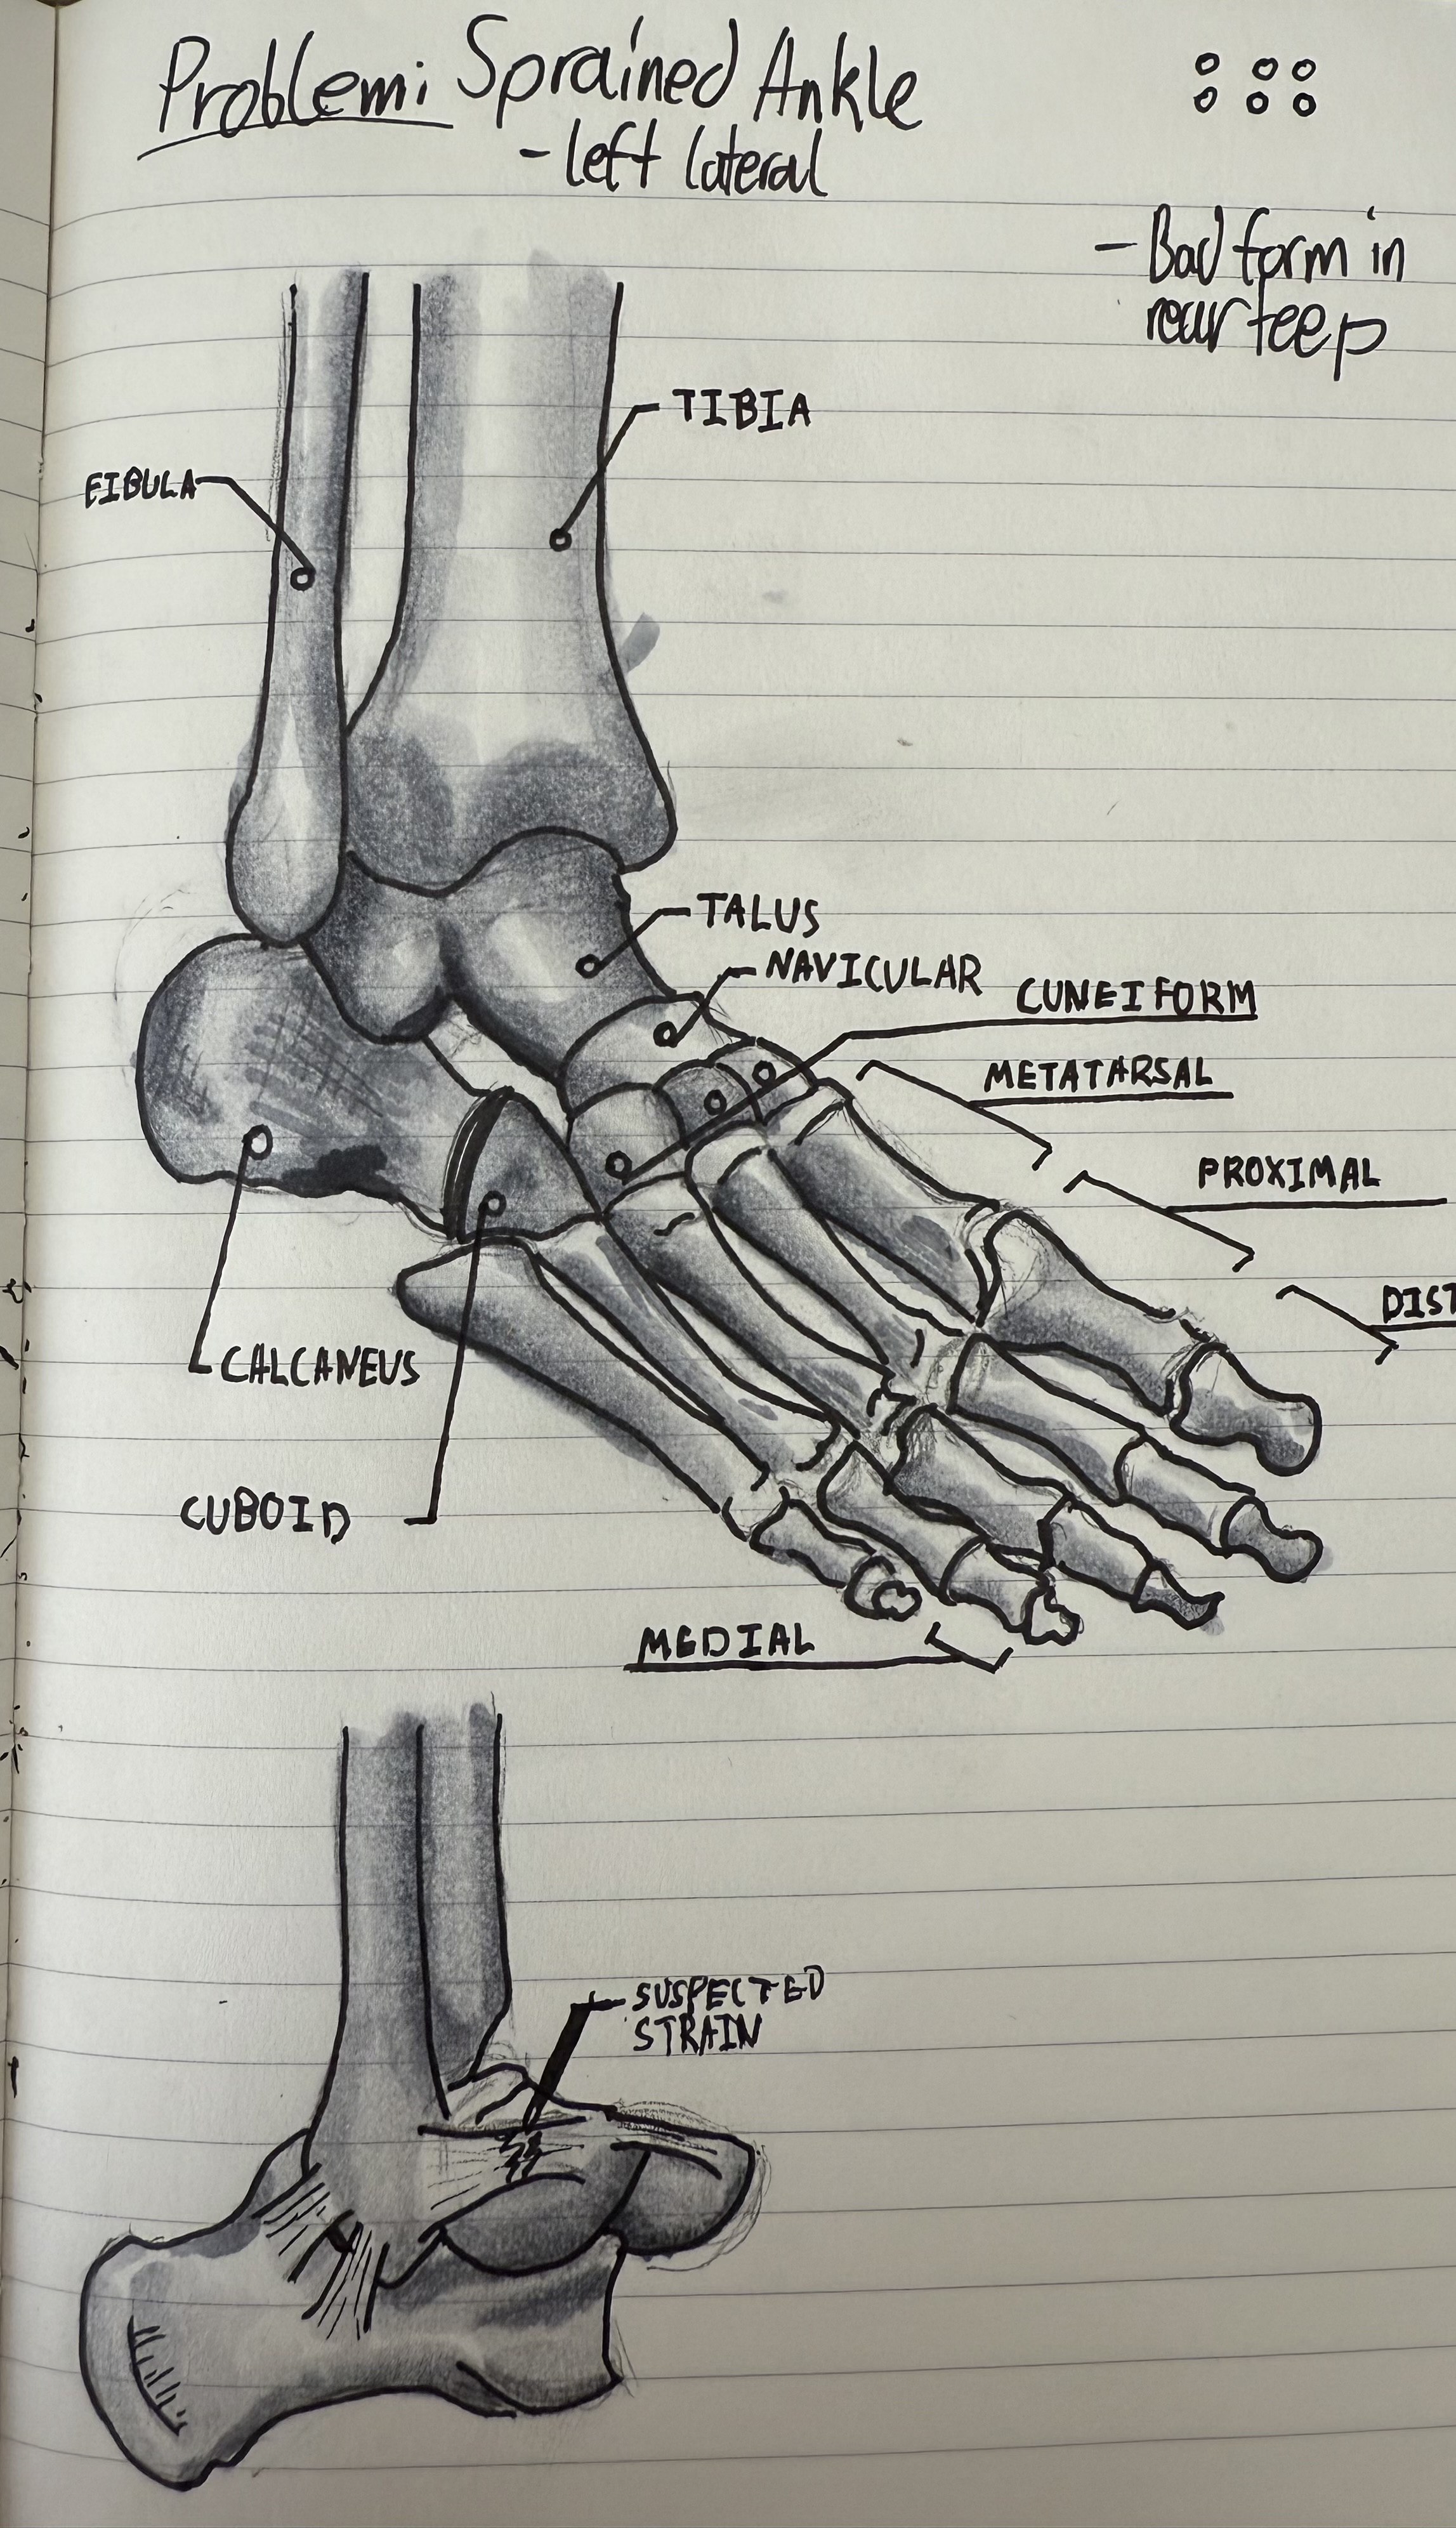 Problem: Sprained Ankle
- left lateral
- Bad form in
rear teep
TIBIA
FIBULA
TALUS
NAVICULAR
CUNEIFORM
METATARSAL
PROXIMAL
DIST
CALCANEUS
CUBOID
MEDIAL
SUSPECTED
STRAIN